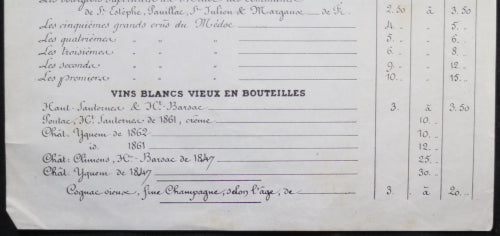 de St Estèphe, Pauillac, St Julien & Margaux de Fr. 2.50 à 3.50
Les cinquièmes grands crûs du Médoc 4. „ 5. „
Les quatrièmes „ „ 5. „ 6. „
Les troisièmes „ „ 6. „ 8. „
Les seconds „ „ 9. „ 12. „
Les premiers „ „ 10. „ 15. „
VINS BLANCS VIEUX EN BOUTEILLES
Haut-Sauternes & Ht-Barsac 3. à 3.50
Pontac, Ht Sauternes de 1861, crème 10. „
Chât. Yquem de 1862 10. „
id. 1861 12. „
Chât. Climens, Ht-Barsac de 1847 25. „
Chât. Yquem de 1847 30. „
Cognac vieux, fine Champagne, selon l'âge, de 3. à 20. „